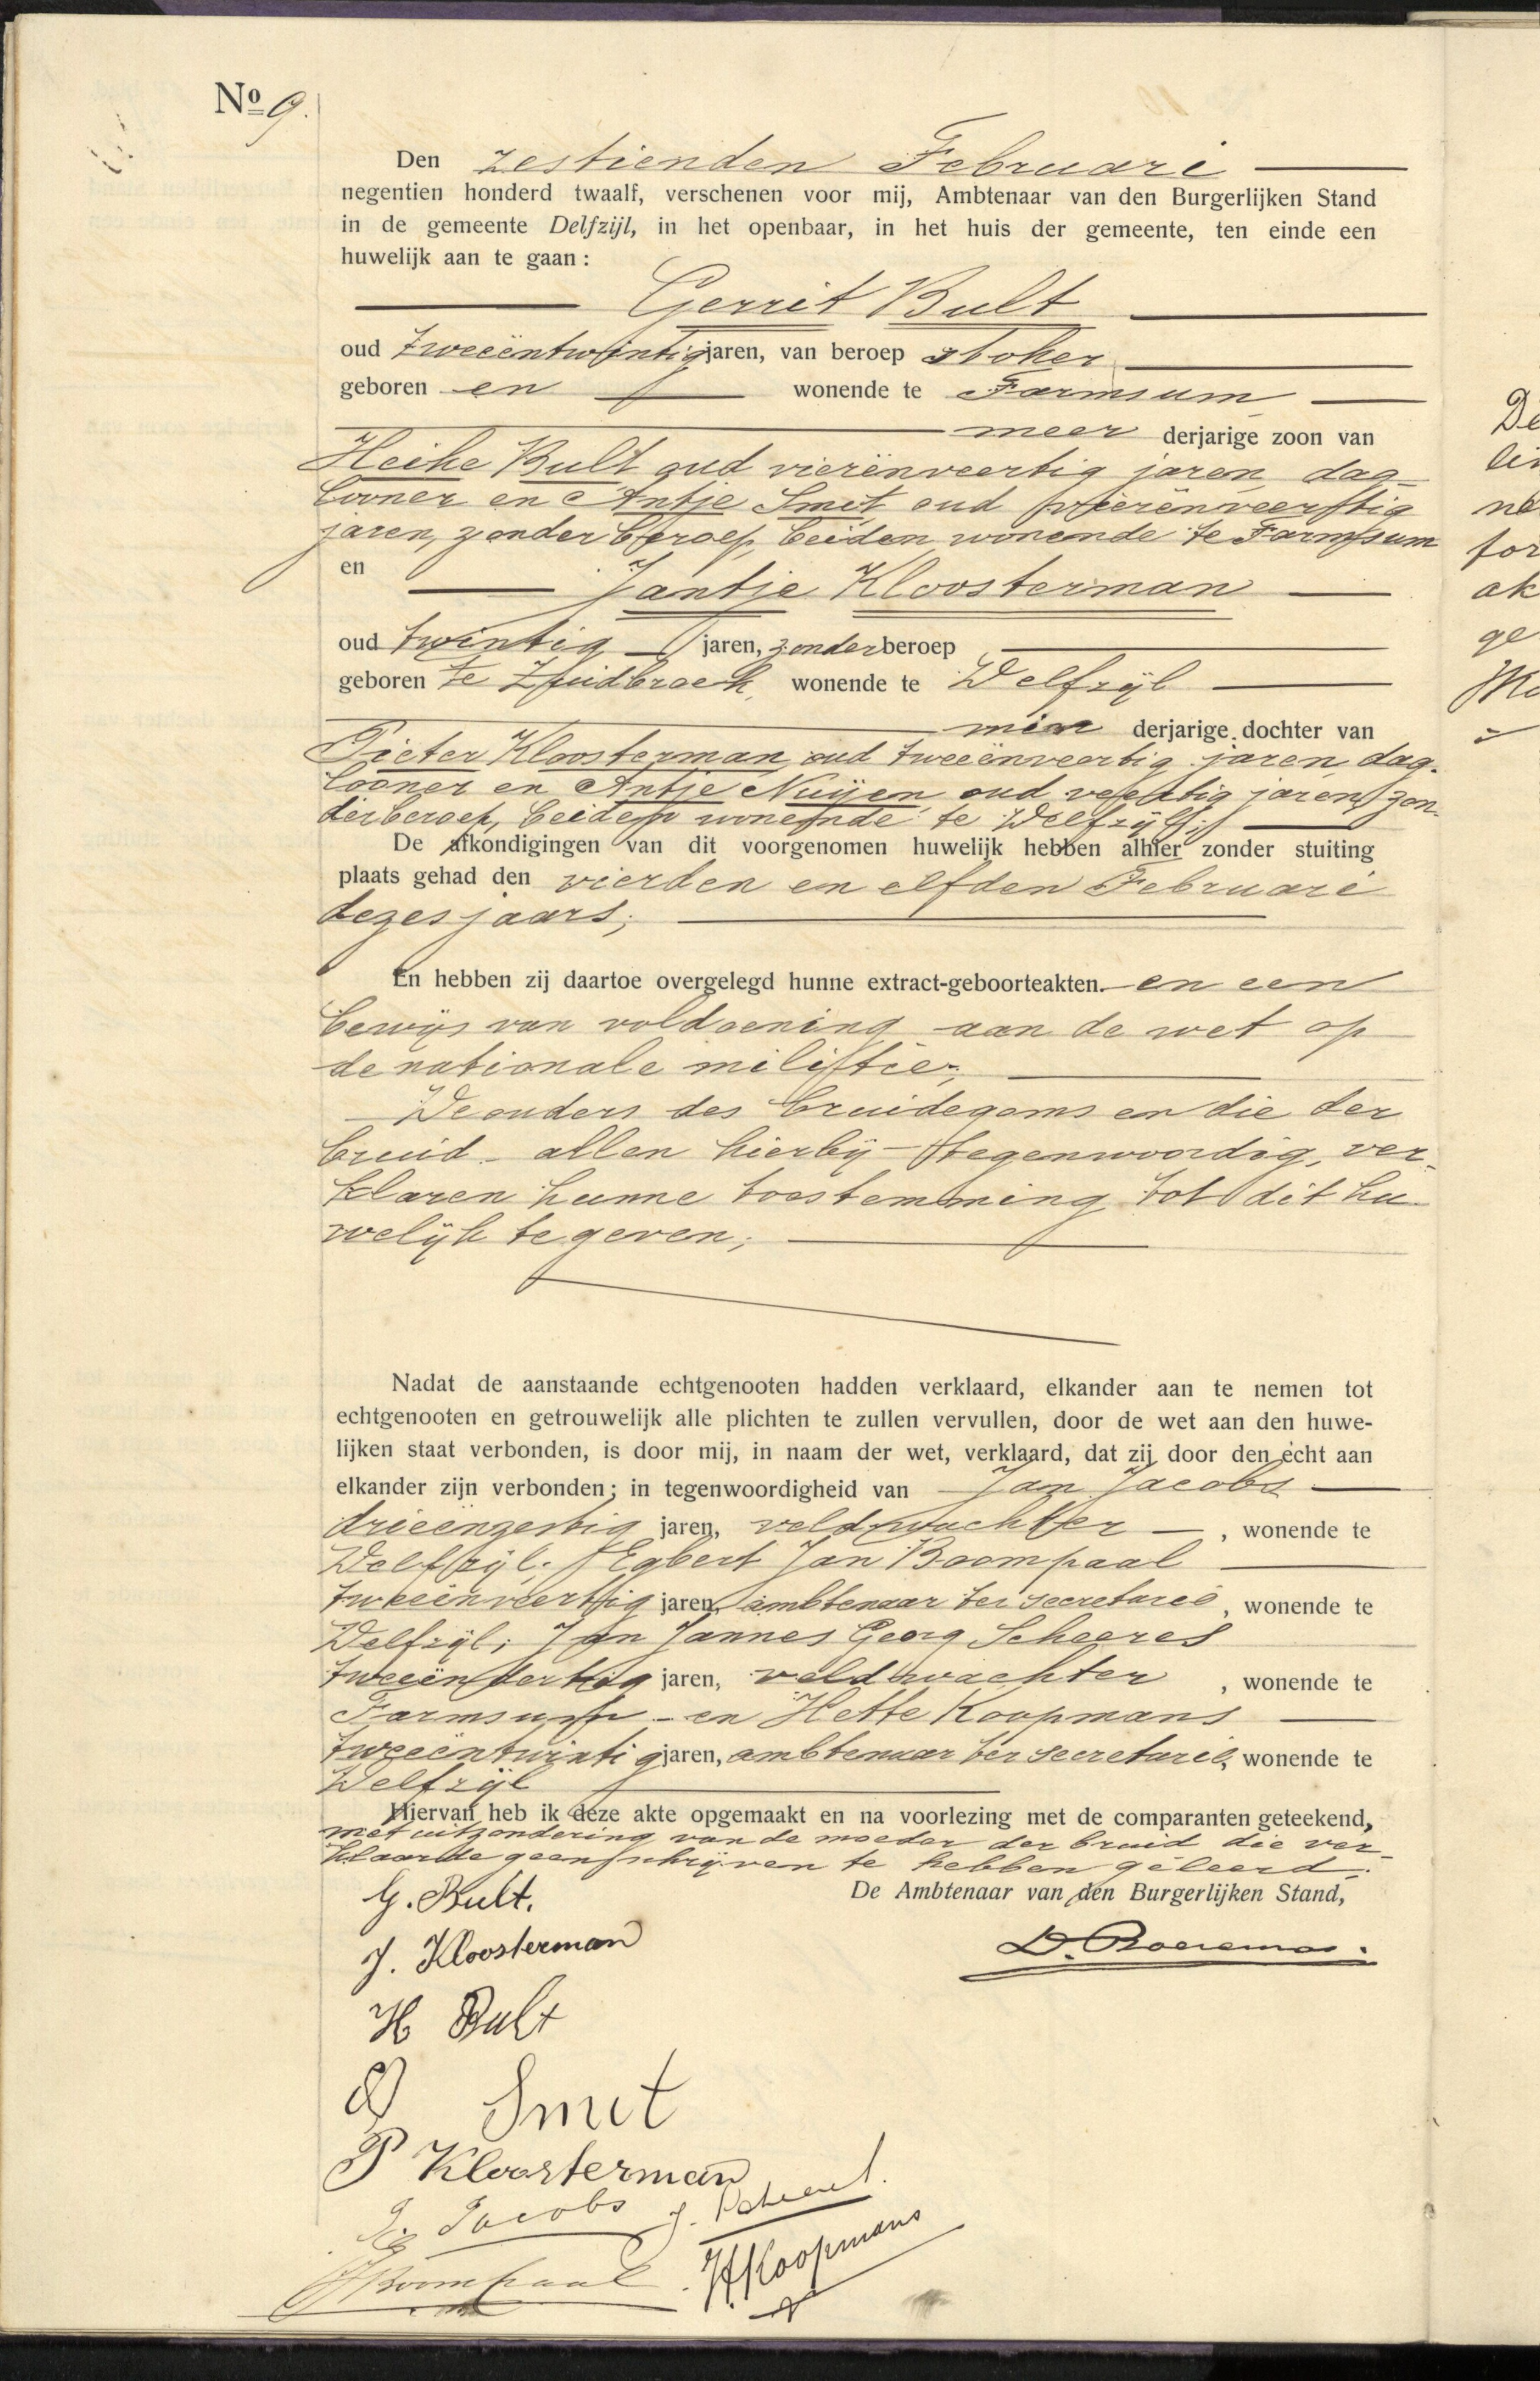 No 9.
Den zestienden Februari
negentien honderd twaalf, verschenen voor mij, Ambtenaar van den Burgerlijken Stand
in de gemeente Delfzijl, in het openbaar, in het huis der gemeente, ten einde een
huwelijk aan te gaan:
Gerrit Bult
oud tweeëntwintig jaren, van beroep stoker
geboren en wonende te Farmsum
meer derjarige zoon van
Heike Bult oud vierënveertig jaren, dag-
looner en Antje Smit, oud vierënveertig
jaren, zonder beroep, beiden wonende te Farmsum
en Jantje Kloosterman
oud twintig jaren, zonder beroep
geboren te Zuidbroek, wonende te Delfzijl
min derjarige dochter van
Pieter Kloosterman, oud tweeënveertig jaren, dag-
looner en Antje Nuijen oud veertig jaren, zon-
der beroep, beiden wonende te Delfzijl;
De afkondigingen van dit voorgenomen huwelijk hebben alhier zonder stuiting
plaats gehad den vierden en elfden Februari
dezes jaars;
En hebben zij daartoe overgelegd hunne extract-geboorteakten. en een
bewijs van voldoening aan de wet op
de nationale militie;
De ouders des bruidegoms en die der
bruid - allen hierbij - tegenwoordig, ver-
klaren hunne toestemming tot dit hu-
welijk te geven;
Nadat de aanstaande echtgenooten hadden verklaard, elkander aan te nemen tot
echtgenooten en getrouwelijk alle plichten te zullen vervullen, door de wet aan den huwe-
lijken staat verbonden, is door mij, in naam der wet, verklaard, dat zij door den echt aan
elkander zijn verbonden; in tegenwoordigheid van Jan Jacobs
drieënzestig jaren, veldwachter, wonende te
Delfzijl; Egbert Jan Boompaal
tweeënveertig jaren, ambtenaar ter secretarie, wonende te
Delfzijl; Jan Jannes Georg Scheerel
tweeëndertig jaren, veldwachter, wonende te
Farmsum - en Hette Koopmans
tweeëntwintig jaren, ambtenaar ter secretarie, wonende te
Delfzijl
Hiervan heb ik deze akte opgemaakt en na voorlezing met de comparanten geteekend,
met uitzondering van de moeder der bruid die ver-
klaarde geen schrijven te hebben geleerd.
De Ambtenaar van den Burgerlijken Stand,
G. Bult.
D. Boerema.
J. Kloosterman
H Bult
A Smit
P Kloosterman
J. Jacobs J. Scheerel.
Boompaal H Koopmans